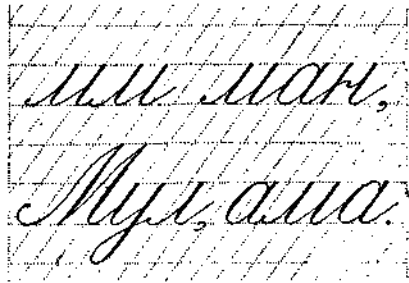 мм ман,
Мул, ама.